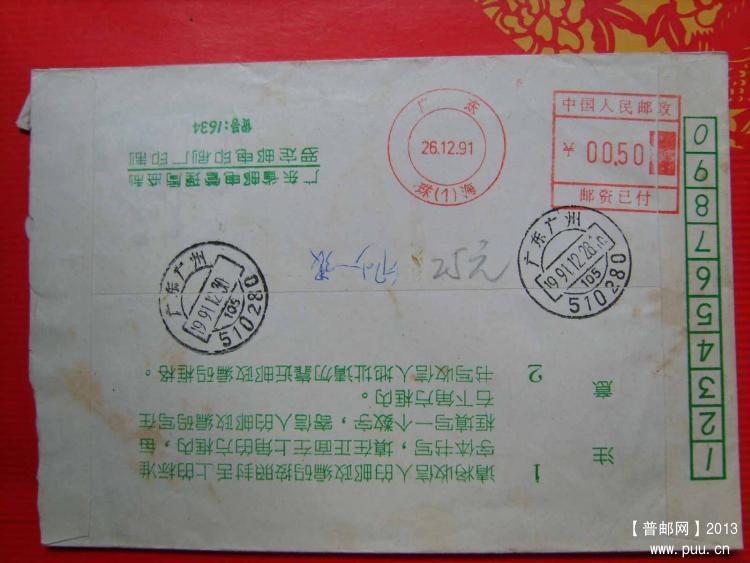 广东
26.12.91
珠(1)海
中国人民邮政
¥ 00.50
邮资已付
货号:1634
广东省邮电管理局监制
罗定邮电印刷厂印制
广东广州
105
510280
广东广州
1991.12.28
105
510280
25元
注意
1 请将收信人的邮政编码按照封舌上的标准
字体书写,填在正面左上角的方框内,每
框填写一个数字,寄信人的邮政编码写在
右下角方框内。
2 书写收信人地址请勿靠近邮政编码框格。
1 2 3 4 5 6 7 8 9 0
【普邮网】2013
www.puu.cn